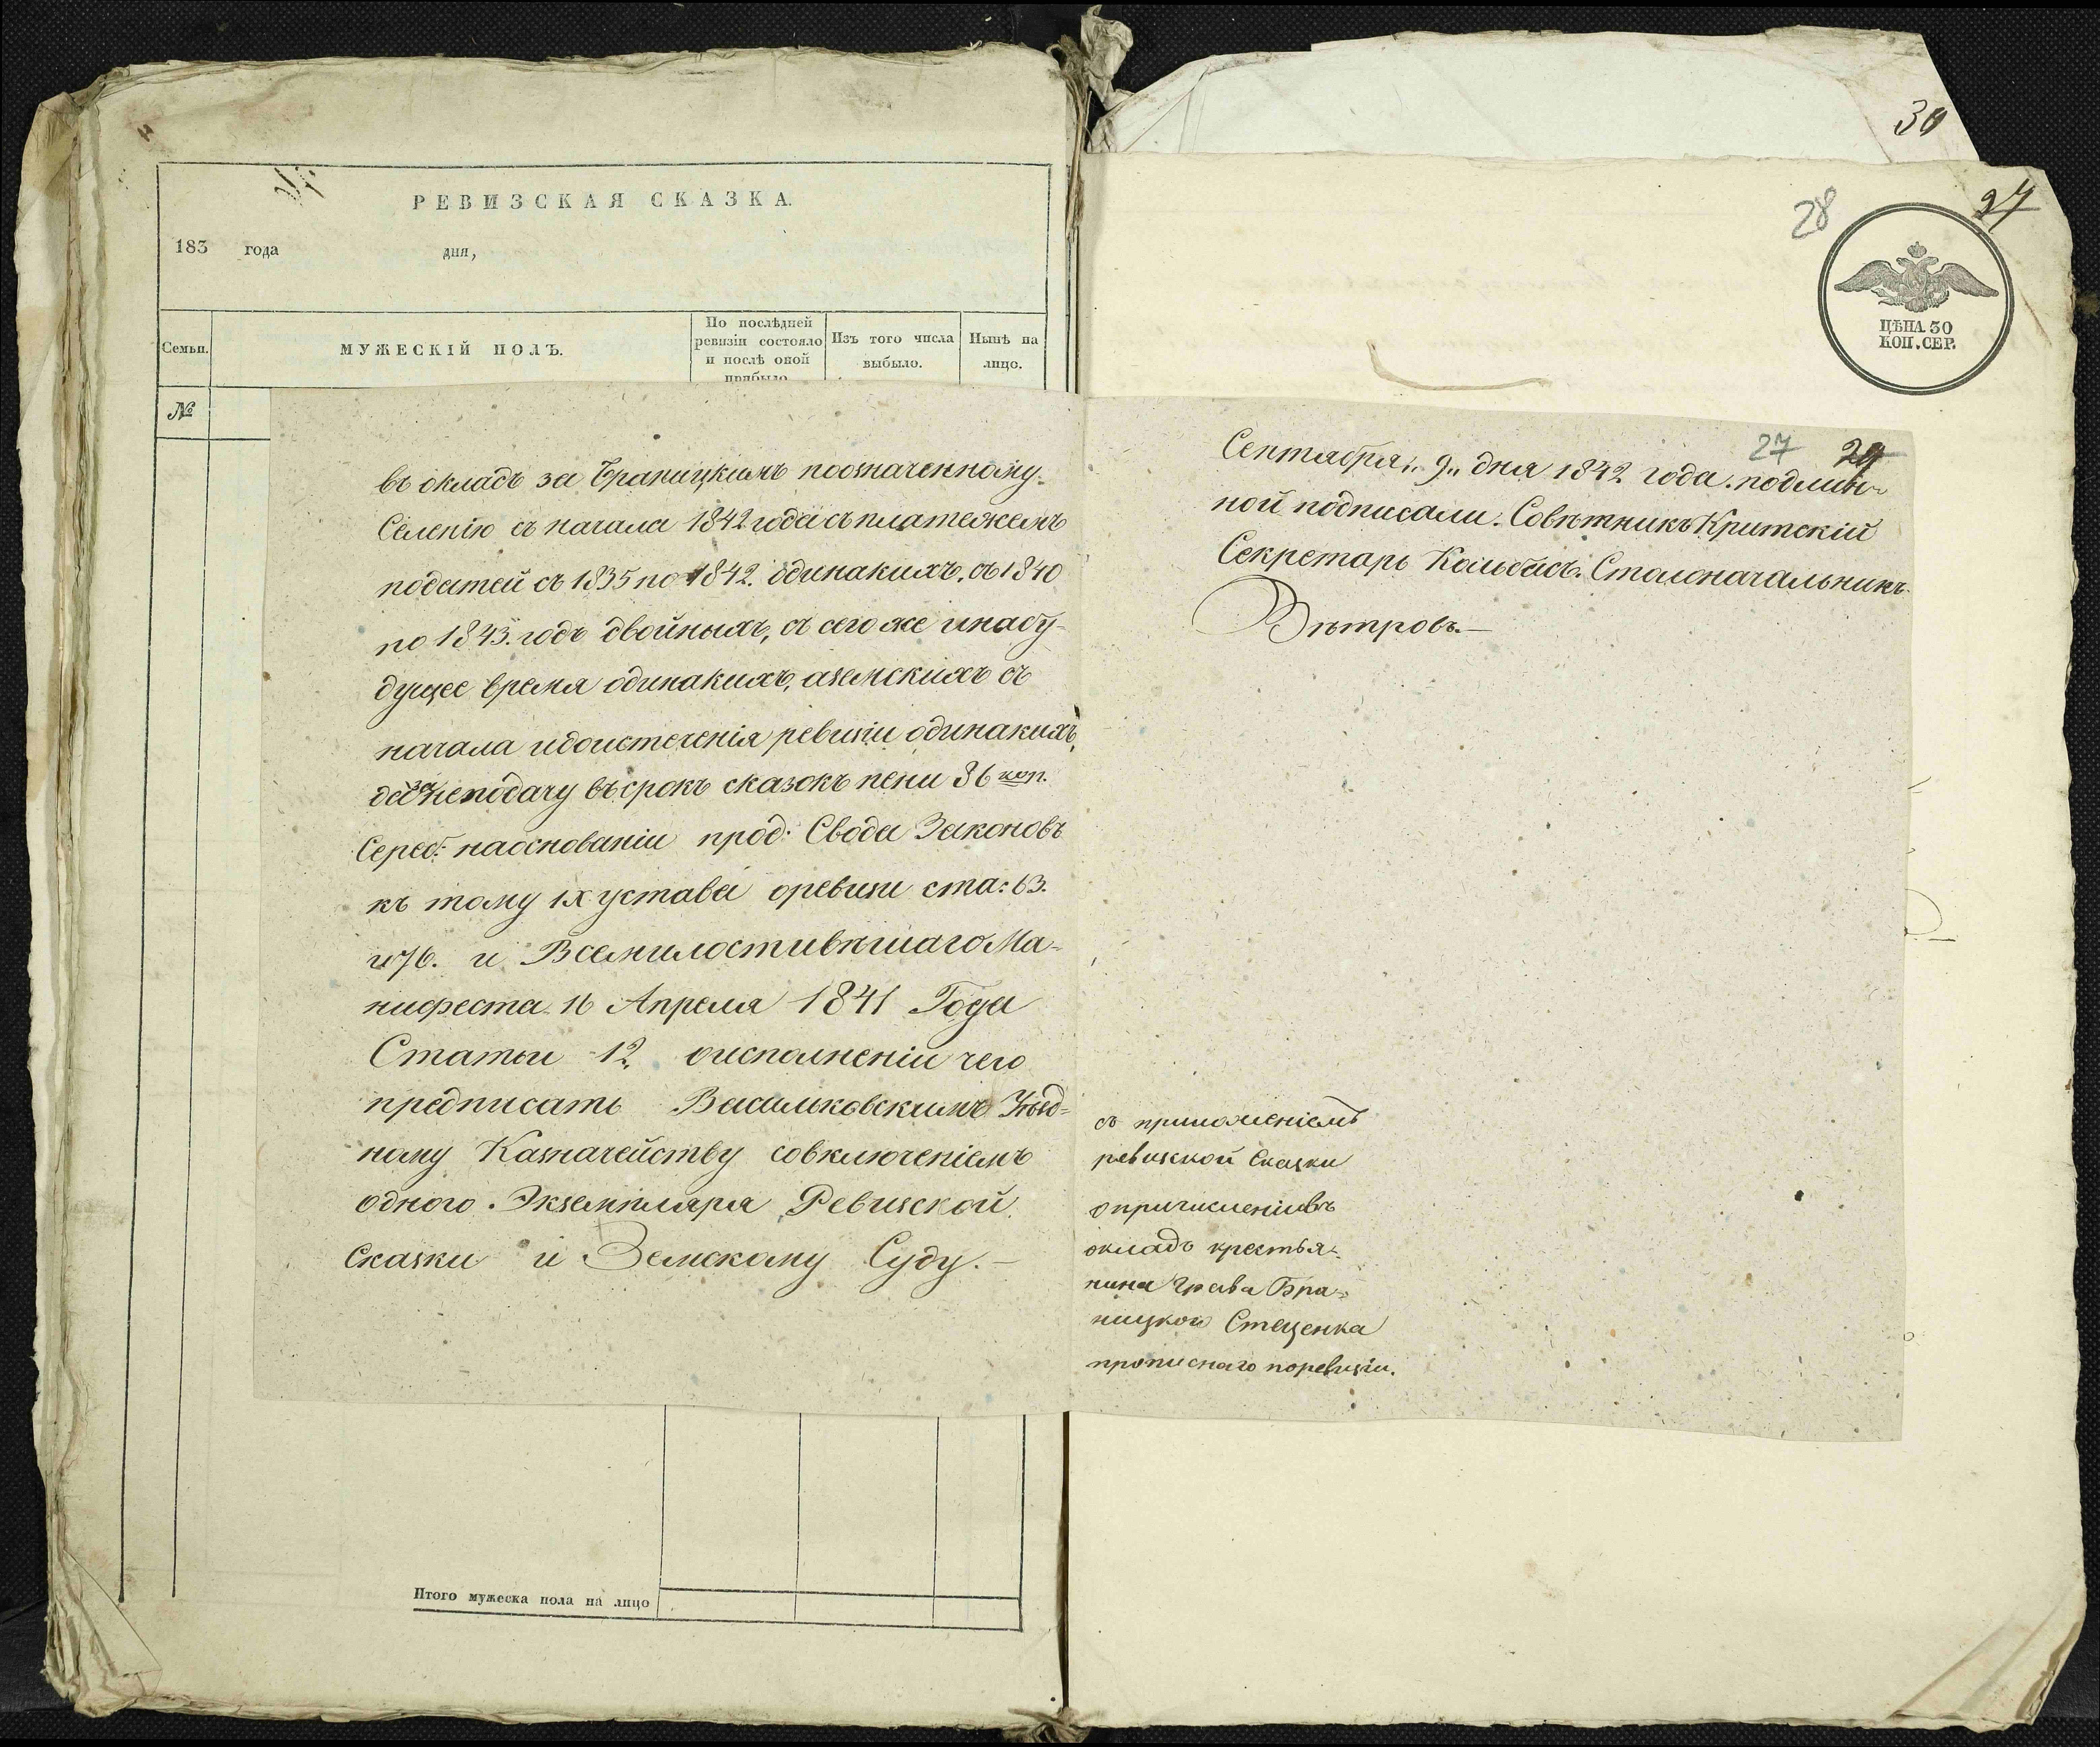 РЕВИЗСКАЯ СКАЗКА.
183 года дня,
Семьи.
МУЖЕСКІЙ ПОЛЪ.
По послѣдней ревизіи состояло и послѣ оной прибыло
Изъ того числа выбыло.
Нынѣ на лицо.
№
въ окладъ за Браницкимъ поозначенному
Селенію съ начала 1842 года съ платежемъ
податей съ 1835 по 1842. одинакихъ, съ 1840
по 1843. годъ двойныхъ, съ сего же инабу-
дущее время одинакихъ, аземскихъ съ
начала идоистеченія ревизіи одинакихъ,
да за неподачу въ срокъ сказокъ пени 36 коп.
Сереб: наоснованіи прод: Свода Законовъ
къ тому IX устава оревизи ста: 63.
и 76. и Всемилостивѣшаго Ма-
нифеста 16 Апреля 1841 Года
Статьи 12. оисполненіи чего
предписать Васильковскимъ Уѣзд-
ному Казначейству совключеніемъ
одного Экземпляра Ревизской
Сказки и Земскому Суду.—
Итого мужеска пола на лицо
30
28
27
ЦѢНА 30
КОП. СЕР.
27 29
Сентября „9„ дня 1842 года. подлин-
ной подписали. Совѣтникъ Критскій
Секретарь Кольбасъ. Столоначальникъ
Вѣтровъ.—
съ приложеніемъ
ревизской Сказки
опричисленіивъ
окладъ крестья-
нина Графа Бра-
ницкого Стеценка
прописнаго поревизіи.